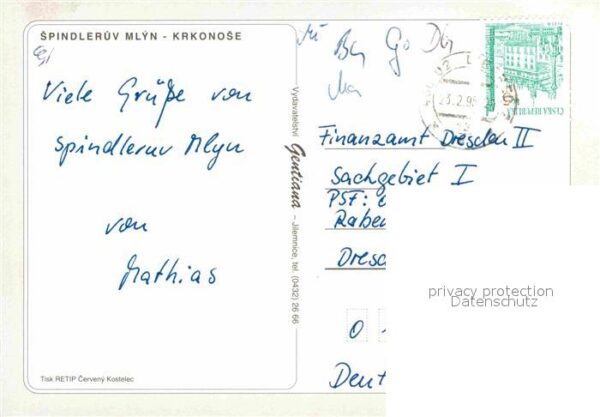 ŠPINDLERŮV MLÝN - KRKONOŠE
Viele Grüße von
Spindleruv Mlyn
von
Mathias
Tisk RETIP Červený Kostelec
Vydavatelství Gentiana – Jilemnice, tel. (0432) 26 66
ČESKÁ REPUBLIKA
Finanzamt Dresden II
Sachgebiet I
PSF:
Raben
Dresd
O 1
Deut
privacy protection
Datenschutz